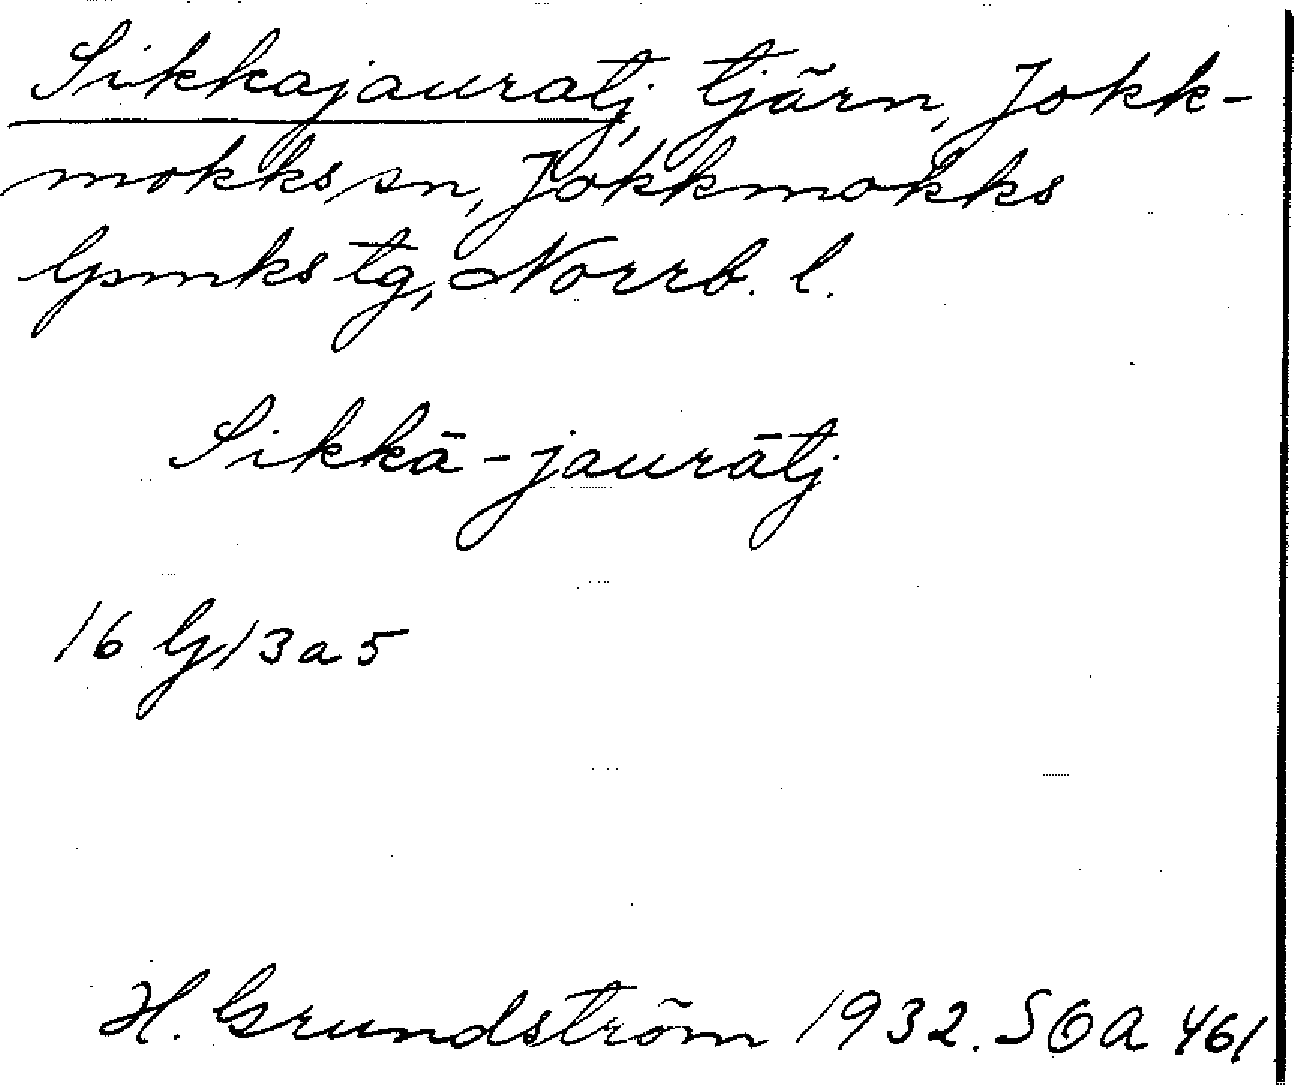 Sikkajauratj, tjärn, Jokk-
mokks sn, Jokkmokks
lpmks tg, Norrb. l.
Sikkā-jaurātj
16 G/3a5
H. Grundström 1932. SOA 461